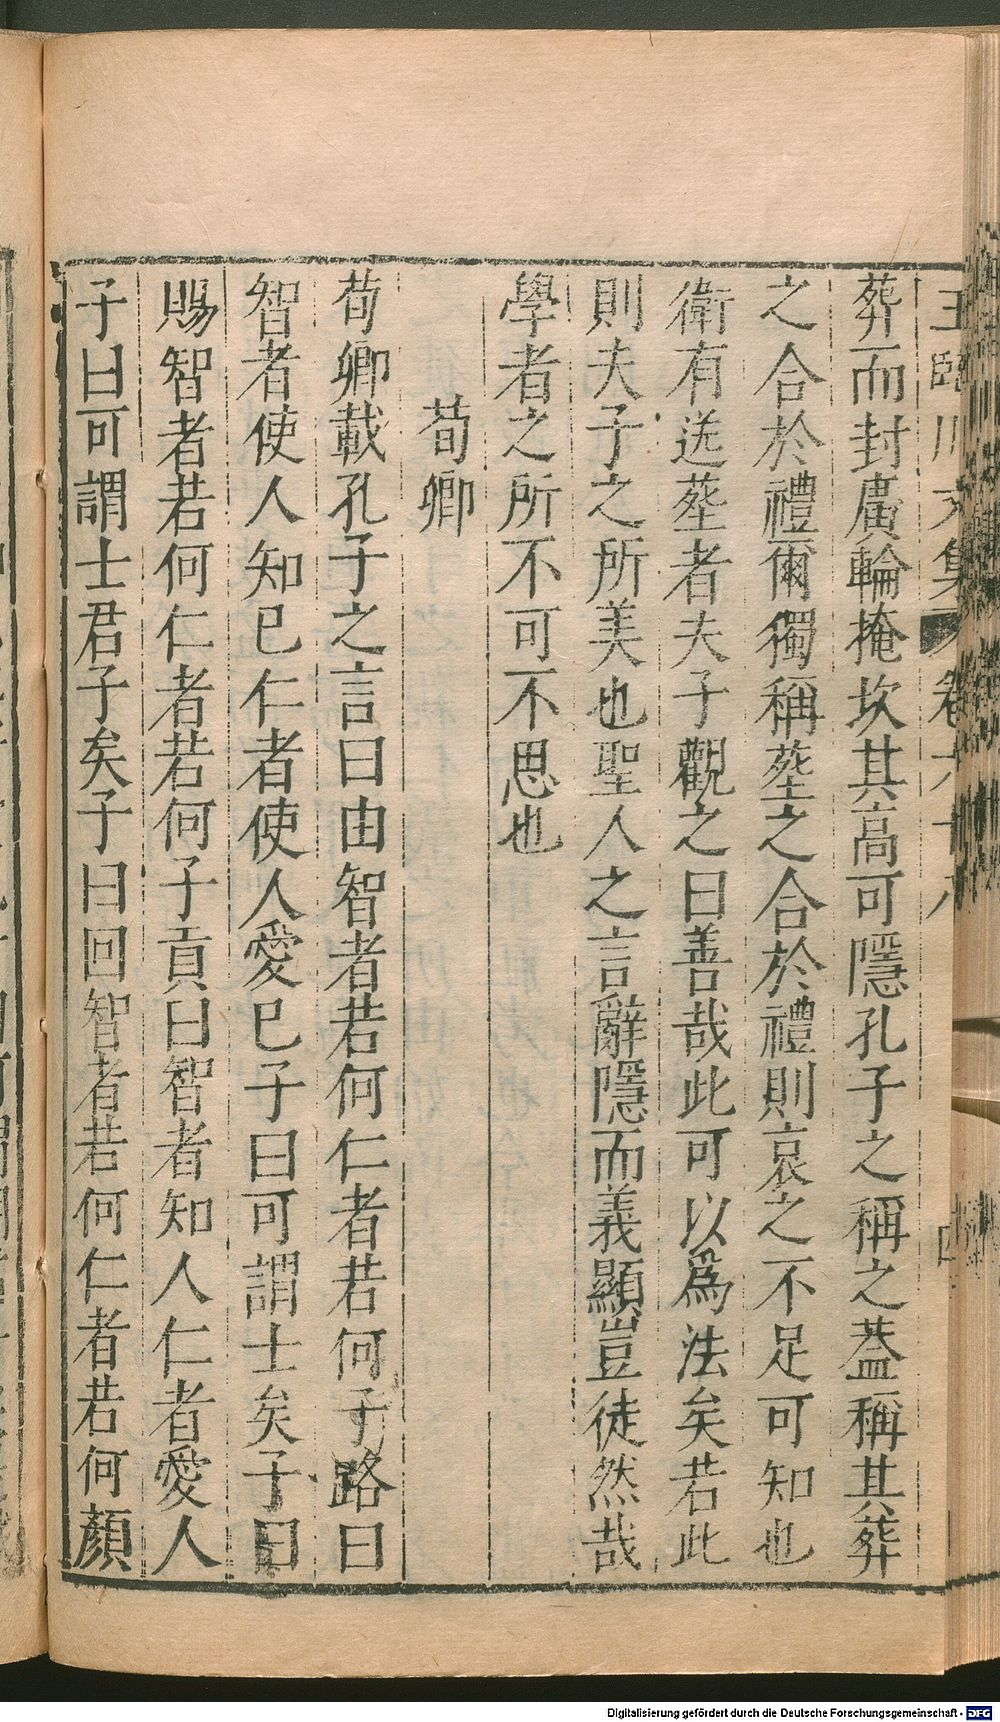 王臨川文集 卷六十八 四
葬而封廣輪掩坎其高可隱孔子之稱之蓋稱其葬
之合於禮爾獨稱塟之合於禮則哀之不足可知也
衛有送塟者夫子觀之曰善哉此可以爲法矣若此
則夫子之所美也聖人之言辭隱而義顯豈徒然哉
學者之所不可不思也
荀卿
荀卿載孔子之言曰由智者若何仁者若何子路曰
智者使人知已仁者使人愛已子曰可謂士矣子曰
賜智者若何仁者若何子貢曰智者知人仁者愛人
子曰可謂士君子矣子曰回智者若何仁者若何顏
Digitalisierung gefördert durch die Deutsche Forschungsgemeinschaft - DFG